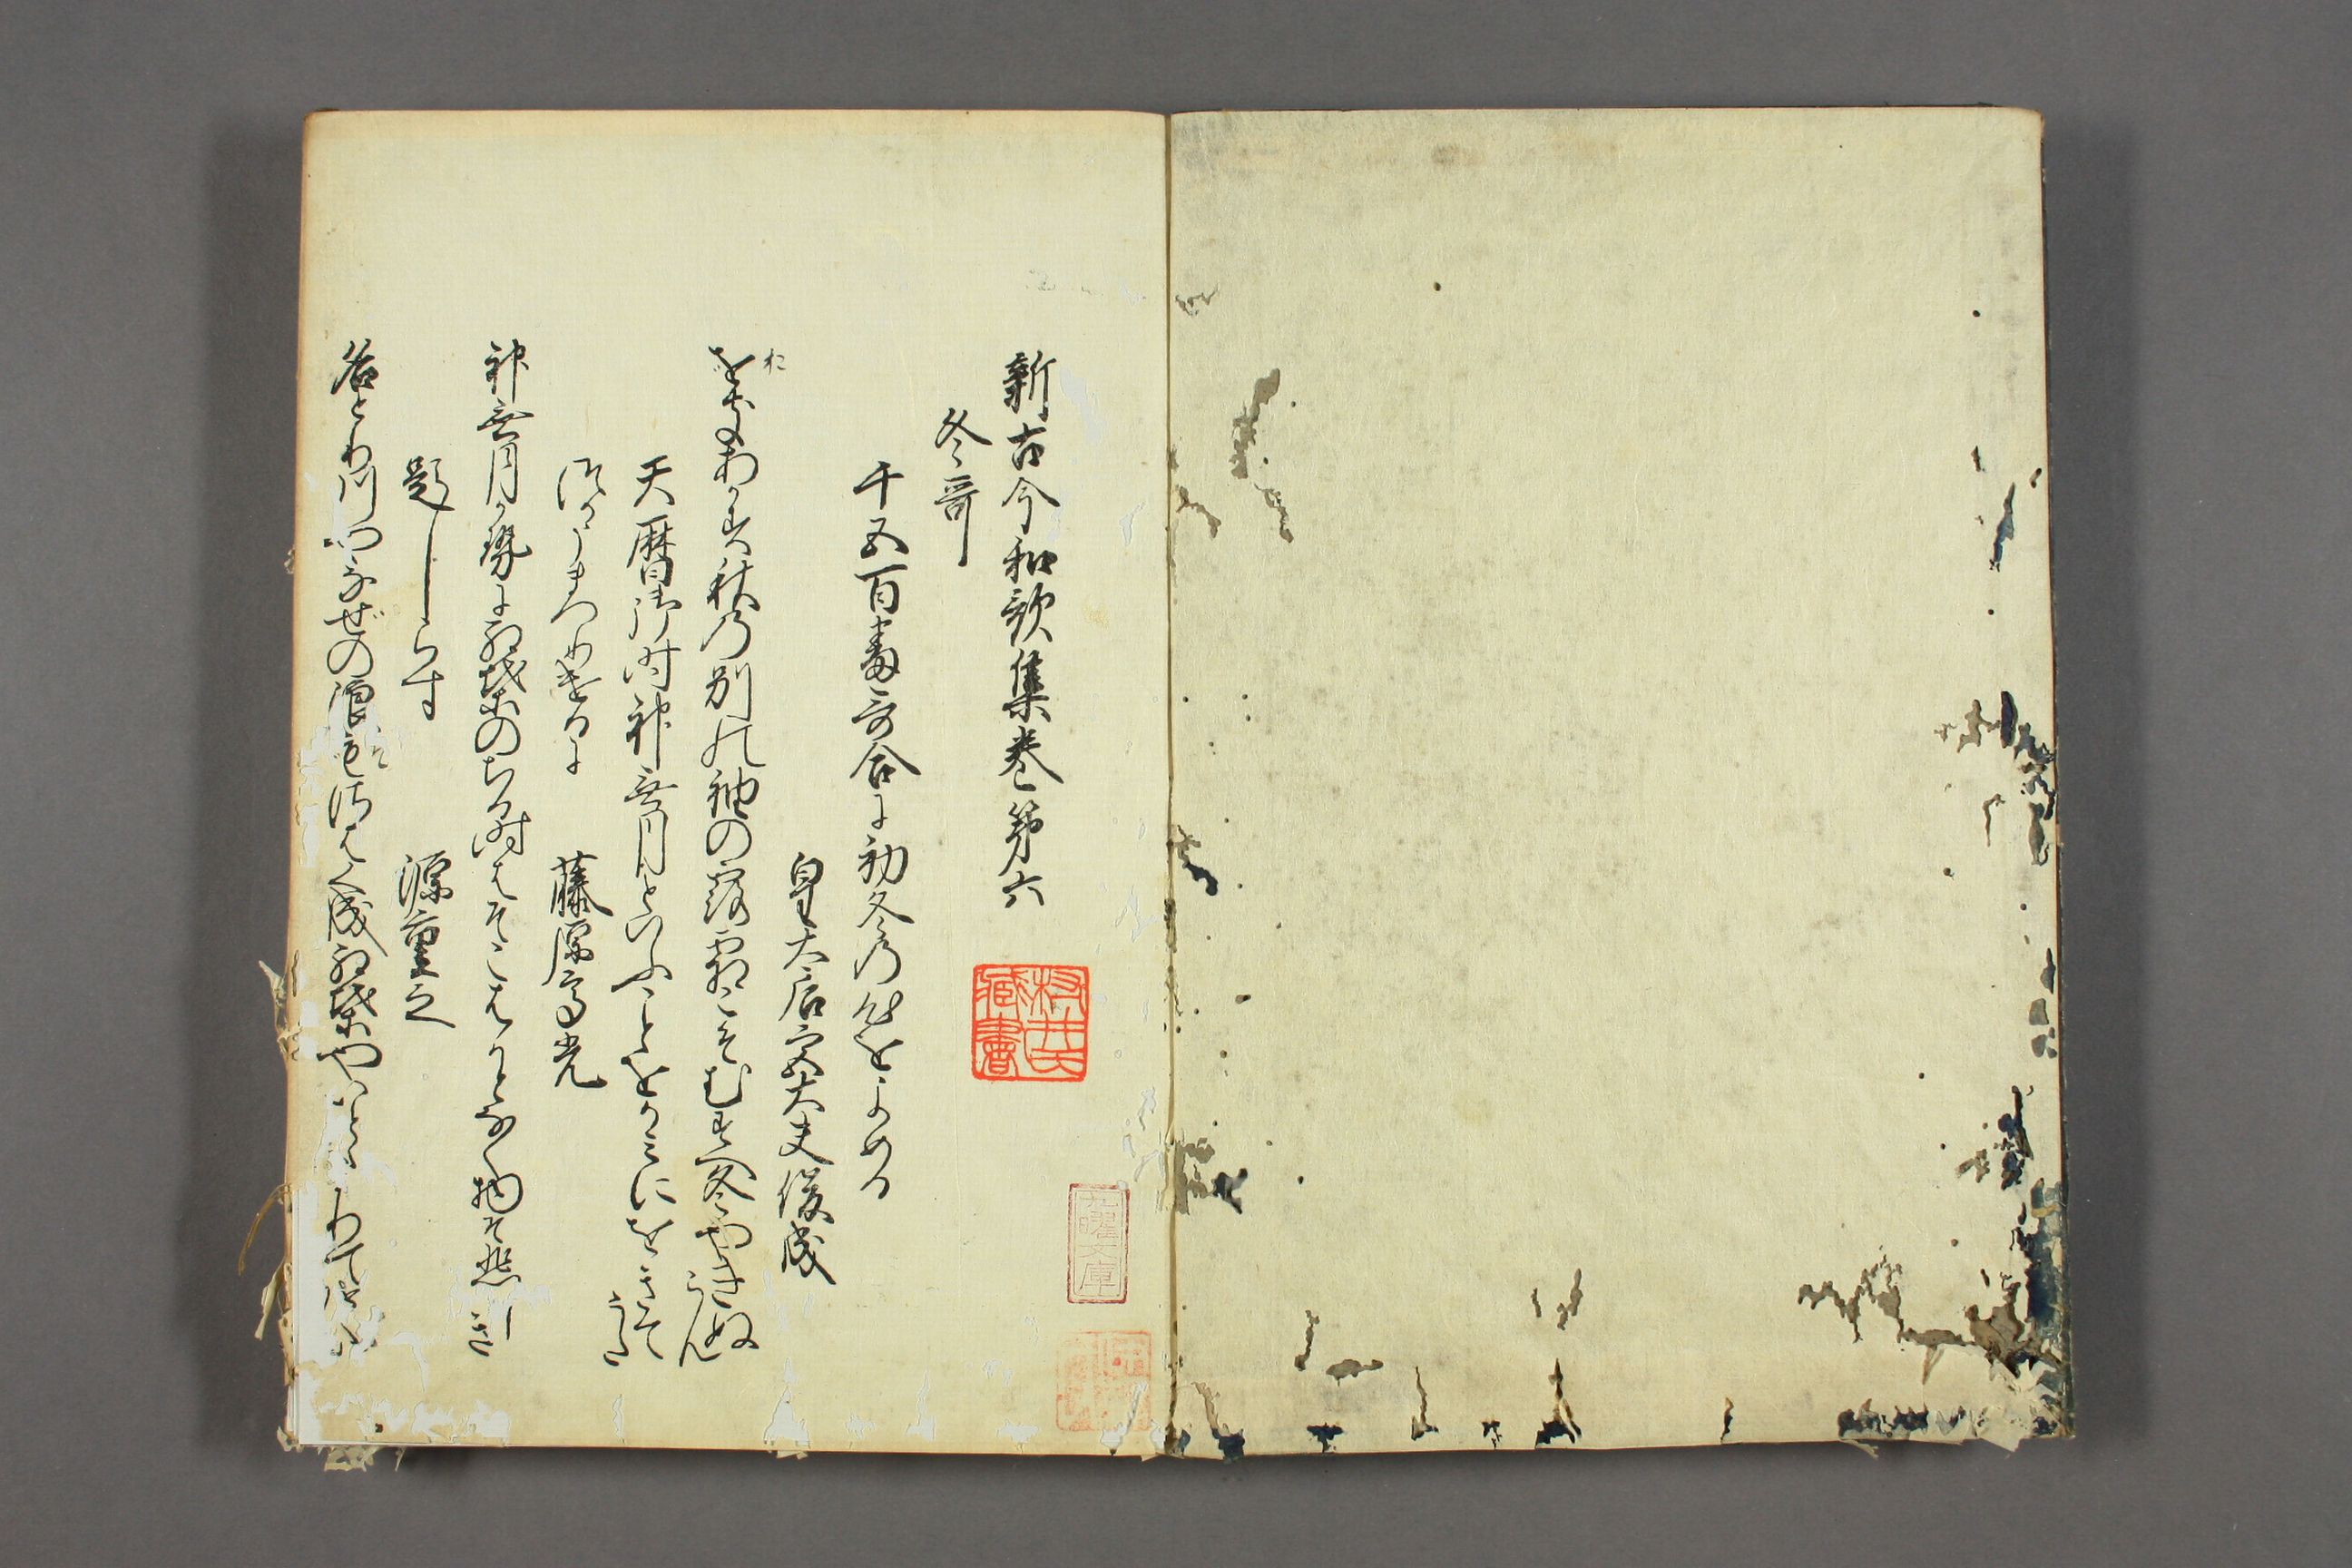 新古今和歌集巻第六
冬哥
千五百番哥合に初冬乃心をよめる
皇太后宮大夫俊成
をきあかす秋乃別の袖の露霜こそむすへ冬やきぬらん
お
天暦御時神無月といふことをかみにをきてうた
つかうまつりけるに
藤原高光
神無月風に紅葉のちる時はそこはかとなく物そ悲しき
題しらす
源重之
名とり川やなせの浪
紅葉やいとゝ
村井氏蔵書
九曜文庫